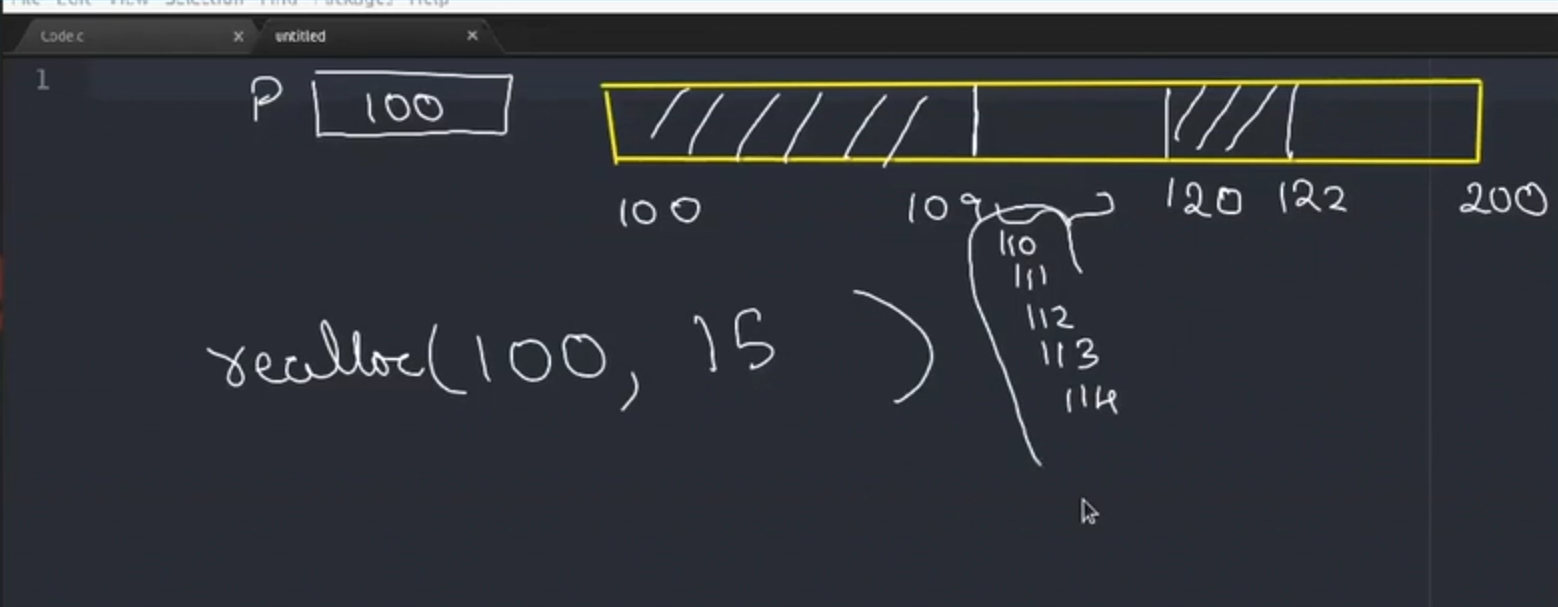 File Edit View Selection Find Packages Help
Code.c untitled
1
P 100
100 109 120 122 200
110
111
112
realloc(100, 15 )
113
114